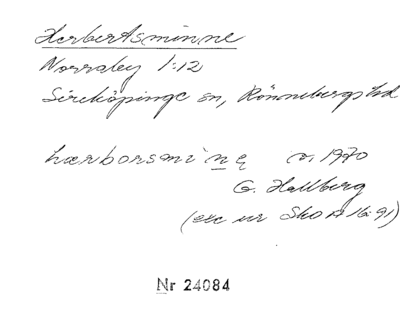 Herbertsminne
Norraley 1:12
Sireköpinge sn, Rönnebergs hd
hærborsminę v. 1970
G. Hallberg
(exc ur Sko A 16:91)
Nr 24084